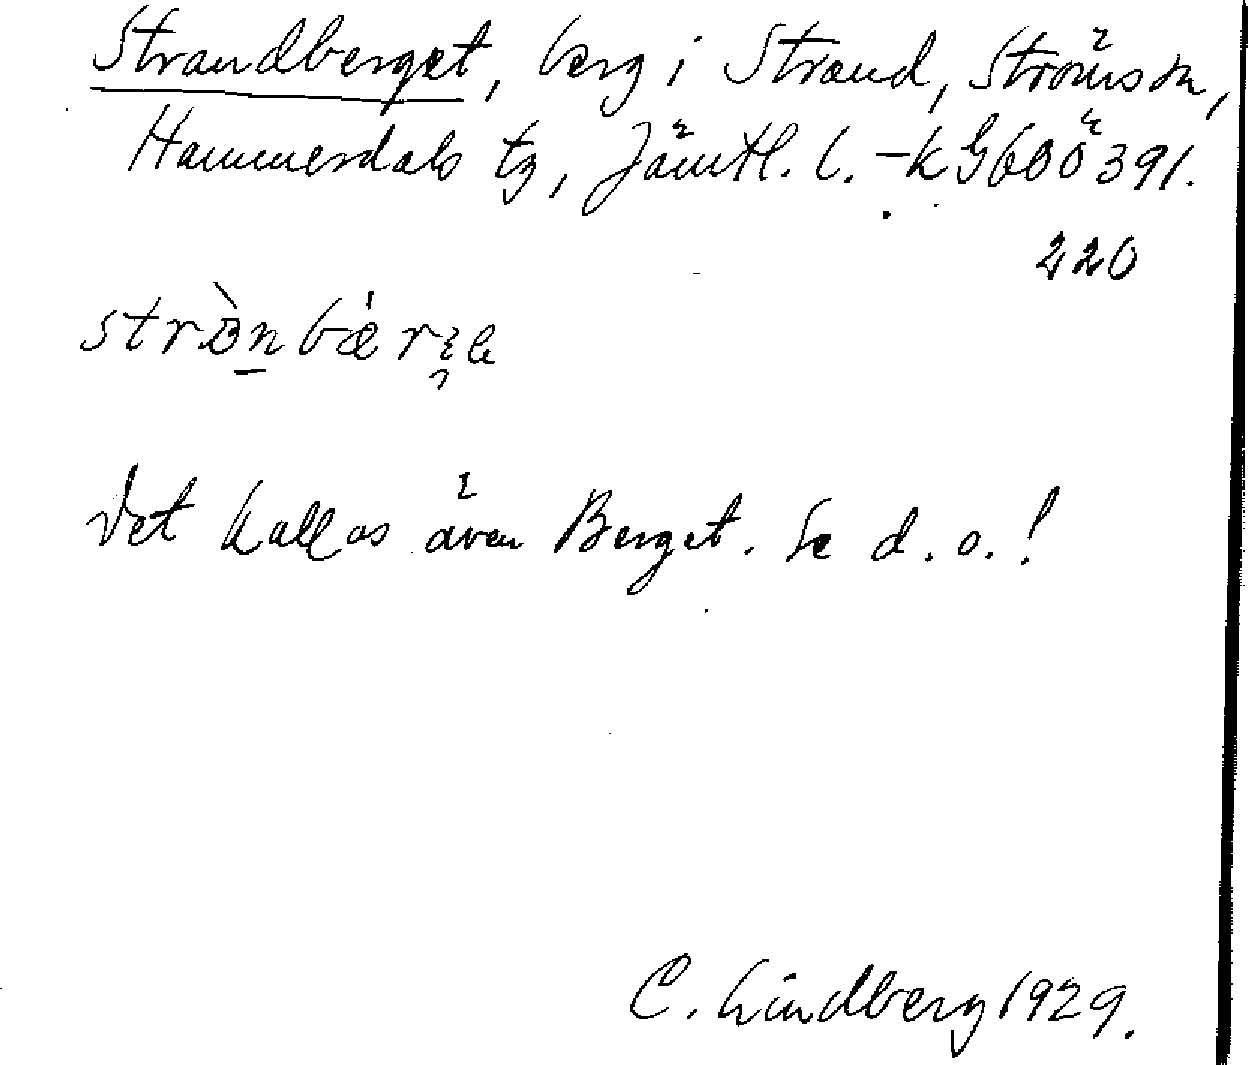 Strandberget, berg i Strand, Ströms sn,
Hammerdals tg, Jämtl. l. – k G600 ö 391.
220
Det kallas även Berget. Se d. o.!
C. Lindberg 1929.